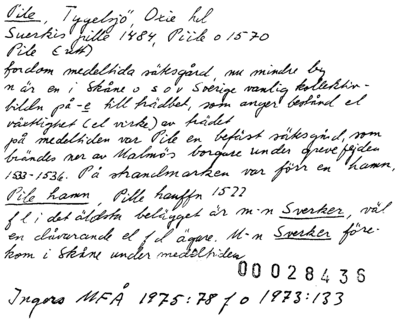 Pile, Tygelsjö, Oxie hd
Sverkis pille 1484, Piile o 1570
Pile (utt)
fordom medeltida säksgård, nu mindre by
n är en i Skåne o s o v Sverige vanlig kollektiv-
bildn på -e till trädbet, som anger bestånd el
växtlighet (el virke) av trädet
på medeltiden var Pile en befäst säksgård, som
brändes ner av Malmös borgare under grevefejden
1533-1536. På strandmarken var förr en hamn,
Pile hamn, Pille hauffn 1522
f l i det äldsta belägget är m n Sverker, väl
en dåvarande el f d ägare. M n Sverker före-
kom i Skåne under medeltiden
00028436
Ingers MFÅ 1975:78 f o 1973:133